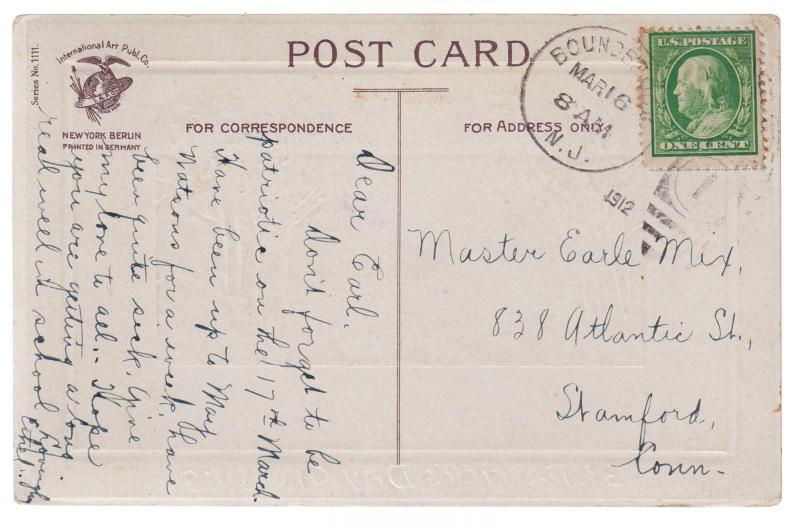 Series No. 1111.
International Art Publ. Co.
NEW YORK BERLIN
PRINTED IN GERMANY
POST CARD
FOR CORRESPONDENCE
FOR ADDRESS ONLY
BOUND
MAR 16
8 AM
N.J.
1912
U.S. POSTAGE
ONE CENT
Dear Earl.
Don't forget to be
patriotic on the 17th March.
Have been up to May
Watsons for a week, have
been quite sick. Give
my love to all. - Hope
you are getting along
real well in school
Ethel
Master Earle Mex,
838 Atlantic St.,
Stamford,
Conn-